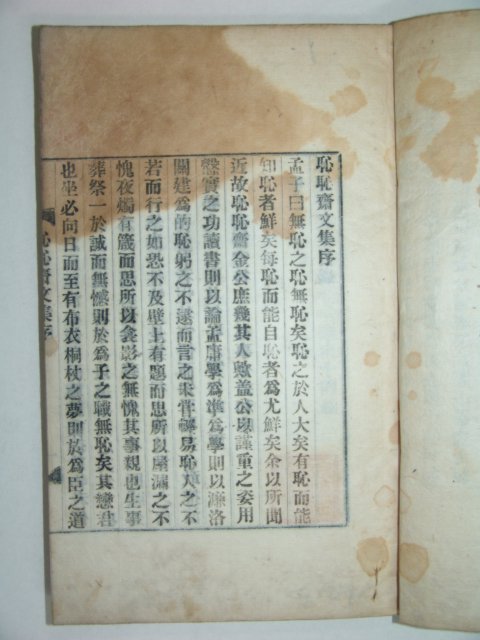 恥恥齋文集序
孟子曰無恥之恥無恥矣恥之於人大矣有恥而能
知恥者鮮矣每恥而能自恥者爲尤鮮矣余以所聞
近故恥恥齋金公庶幾其人歟盖公以謹重之姿用
慤實之功讀書則以論孟庸學爲準爲學則以濂洛
關建爲的恥躬之不逮而言之未嘗輕易恥人之不
若而行之如恐不及壁上有題而思所以屋漏之不
愧夜燭有箴而思所以衾影之無愧其事親也生事
葬祭一於誠而無憾則於爲子之職無恥矣其戀君
也坐必向日而至有布衣桐杖之夢則於爲臣之道
恥恥齋文集序